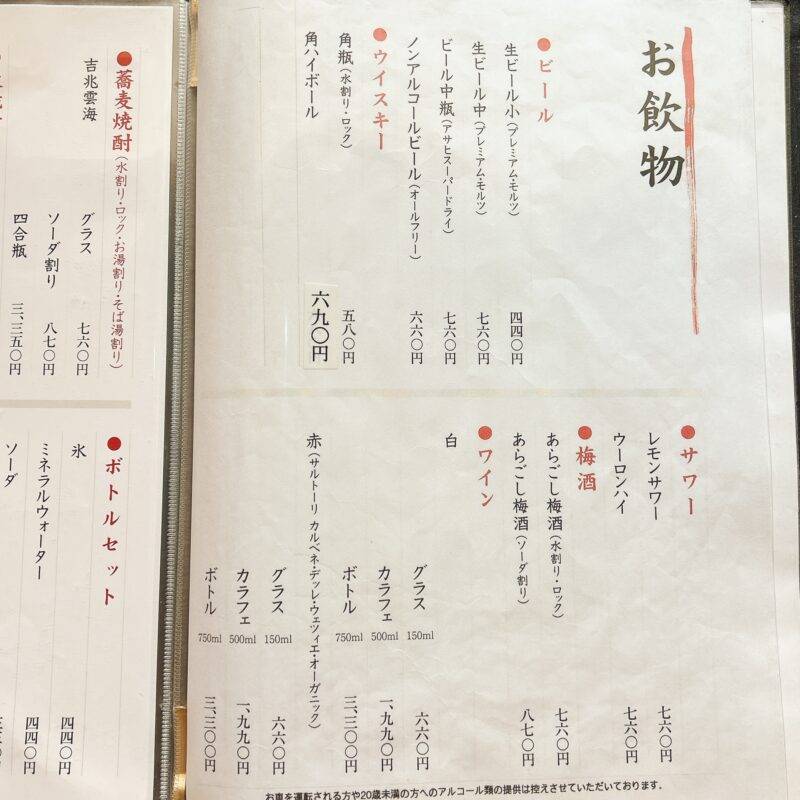 お飲物
●ビール
生ビール小（プレミアム・モルツ） 四四〇円
生ビール中（プレミアム・モルツ） 七六〇円
ビール中瓶（アサヒスーパードライ） 七六〇円
ノンアルコールビール（オールフリー） 六六〇円
●ウイスキー
角瓶（水割り・ロック） 五八〇円
角ハイボール 六九〇円
●サワー
レモンサワー 七六〇円
ウーロンハイ 七六〇円
●梅酒
あらごし梅酒（水割り・ロック） 七六〇円
あらごし梅酒（ソーダ割り） 八七〇円
●ワイン
白
グラス 150ml 六六〇円
カラフェ 500ml 一、九九〇円
ボトル 750ml 三、三〇〇円
赤（サルトーリ カルベネ・デッレ・ウェツィエ・オーガニック）
グラス 150ml 六六〇円
カラフェ 500ml 一、九九〇円
ボトル 750ml 三、三〇〇円
お車を運転される方や20歳未満の方へのアルコール類の提供は控えさせていただいております。
●蕎麦焼酎（水割り・ロック・お湯割り・そば湯割り）
吉兆雲海
グラス 七六〇円
ソーダ割り 八七〇円
四合瓶 三、三五〇円
●ボトルセット
氷 四四〇円
ミネラルウォーター 四四〇円
ソーダ